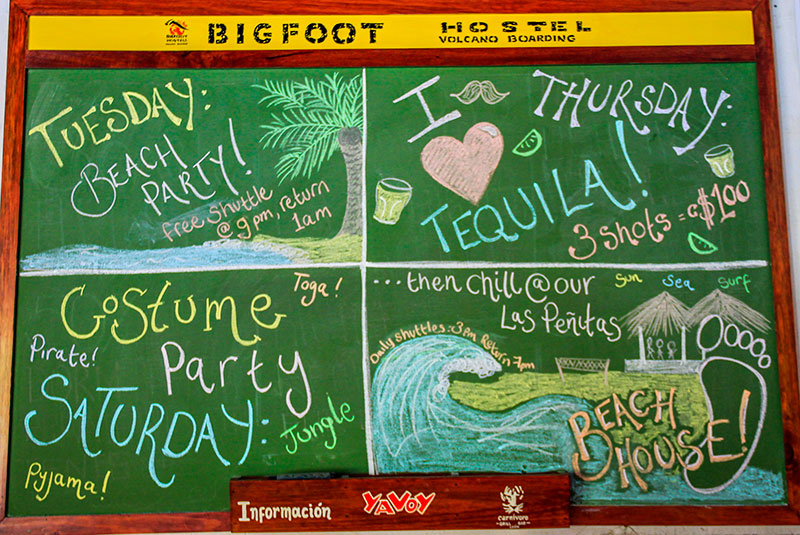 BIGFOOT HOSTEL
VOLCANO BOARDING
TUESDAY:
BEACH
PARTY!
free shuttle
@ 9pm, return
1am
I THURSDAY:
TEQUILA!
3 shots = C$100
Costume
Toga!
Pirate!
Party
SATURDAY:
Jungle
Pyjama!
...then chill @ our
Sun Sea Surf
Las Peñitas
Daily shuttles: 3pm Return 7pm
BEACH
HOUSE!
Información
YAVOY
carnivoro
GRILL BAR